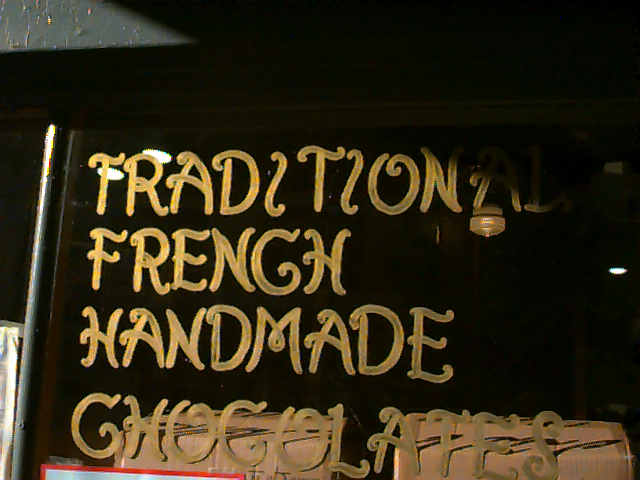 TRADITIONAL
FRENCH
HANDMADE
CHOCOLATES